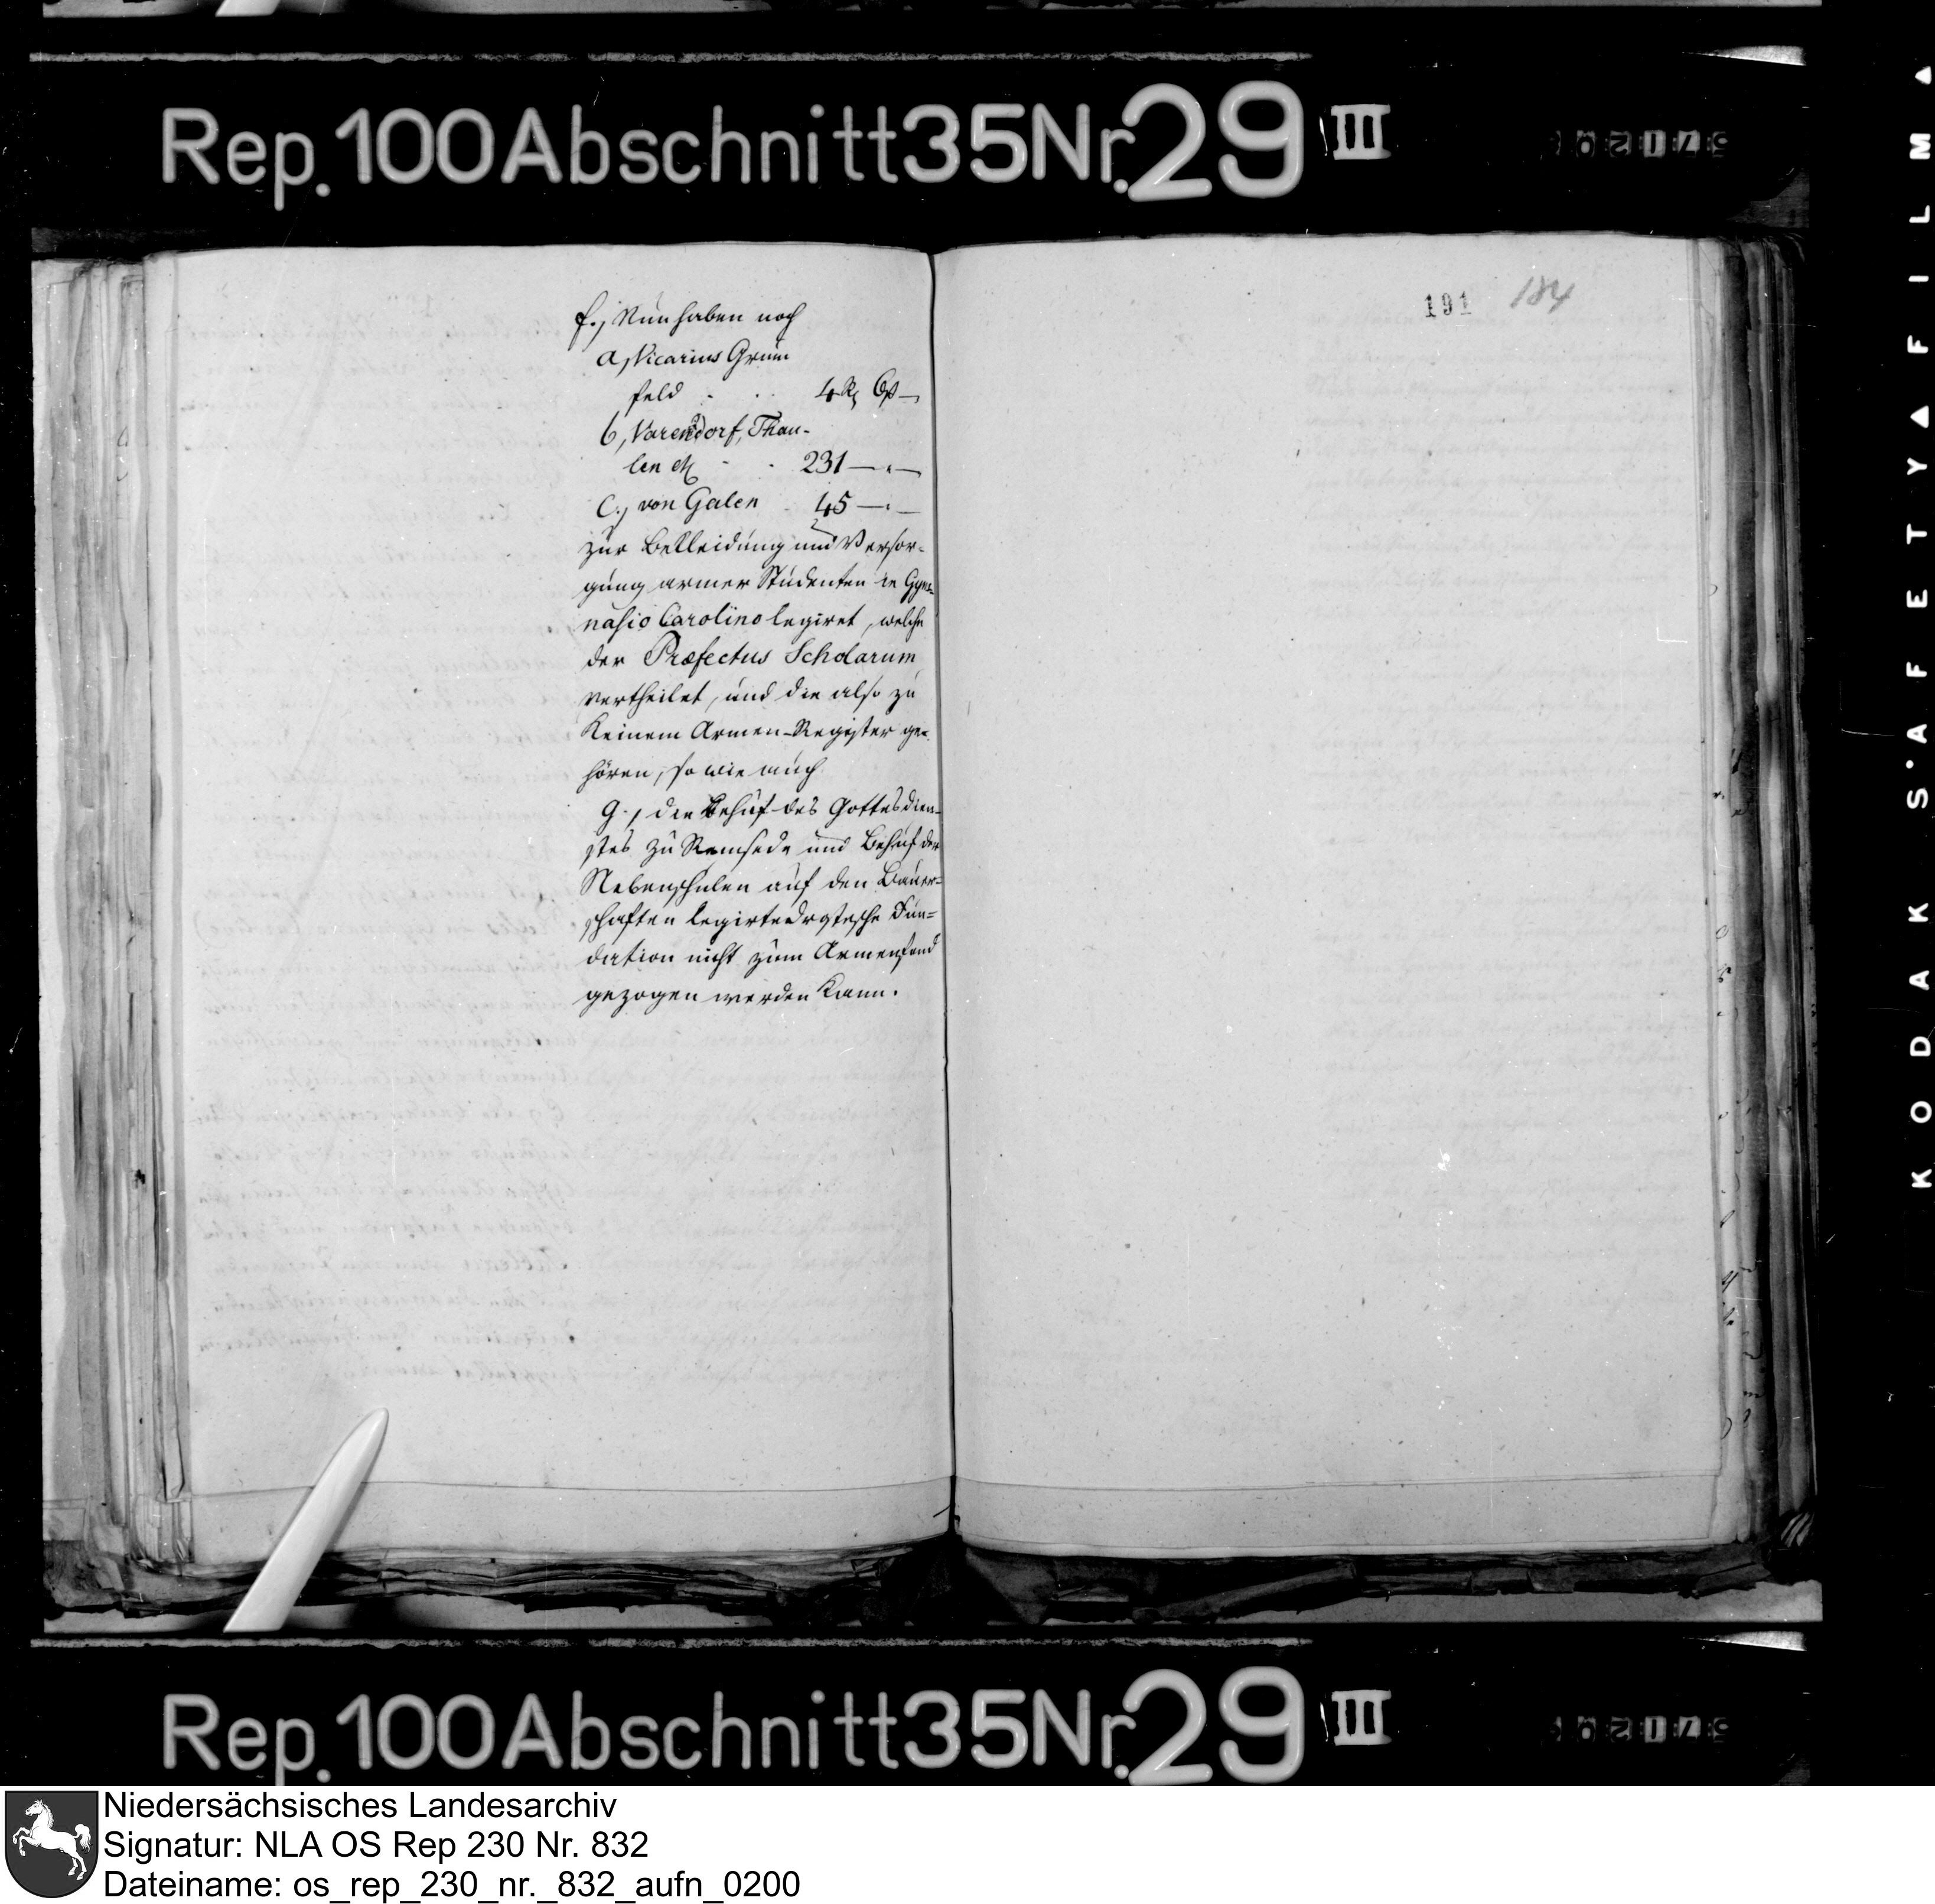 Rep. 100 Abschnitt 35 Nr. 29 III
191 184
f., Nun haben noch
a, Vicarius Grün
feld . . . 4 Rℓ 6 ß —
b, Varendorf, Thau-
len etc - . 231 — " —
C., von Galen . 45 — " —
zur Bekleidung und Versor-
gung armer Studenten in Gym-
nasio Carolino legiret, welche
der Præfectus Scholarum
vertheilet, und die also zu
Keinem Armen-Register ge-
hören, so wie auch
g., die Behuf des Gottesdien-
stes zu Remsede und Behuf der
Nebenschulen auf den Bauer-
schaften legirte Drostesche Fun-
dation nicht zum Armenfond
gezogen werden kann.
Rep. 100 Abschnitt 35 Nr. 29 III
KODAK S'AFETY▲FILM▲
Niedersächsisches Landesarchiv
Signatur: NLA OS Rep 230 Nr. 832
Dateiname: os_rep_230_nr._832_aufn_0200